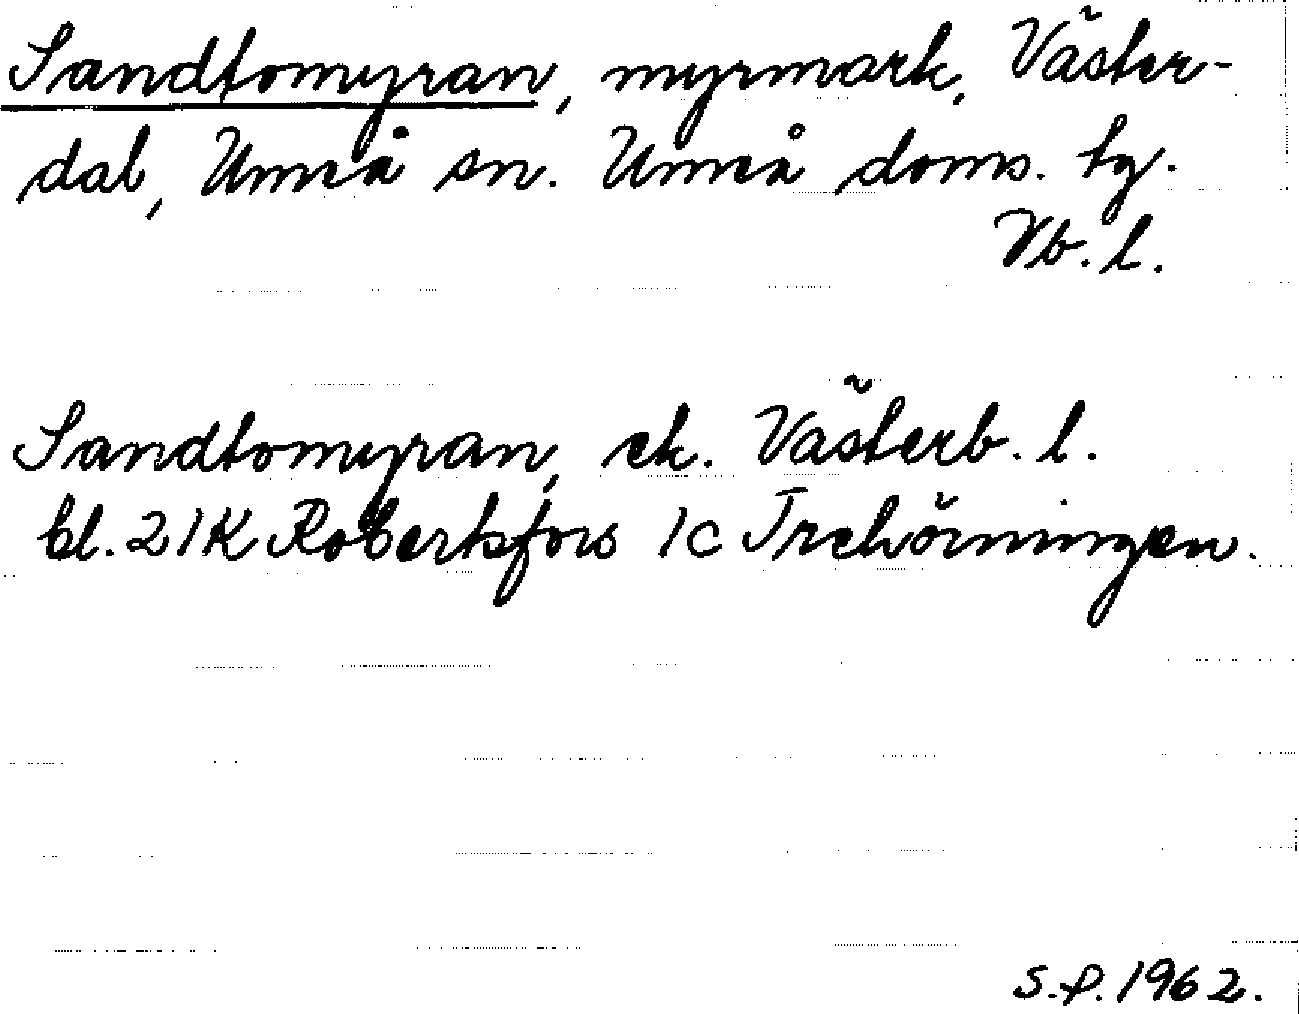 Sandtomyran, myrmark, Väster-
dal, Umeå sn. Umeå doms. tg.
Vb. l.
Sandtomyran, ek. Västerb. l.
bl. 21K Robertsfors 1c Trehörningen.
S.P. 1962.